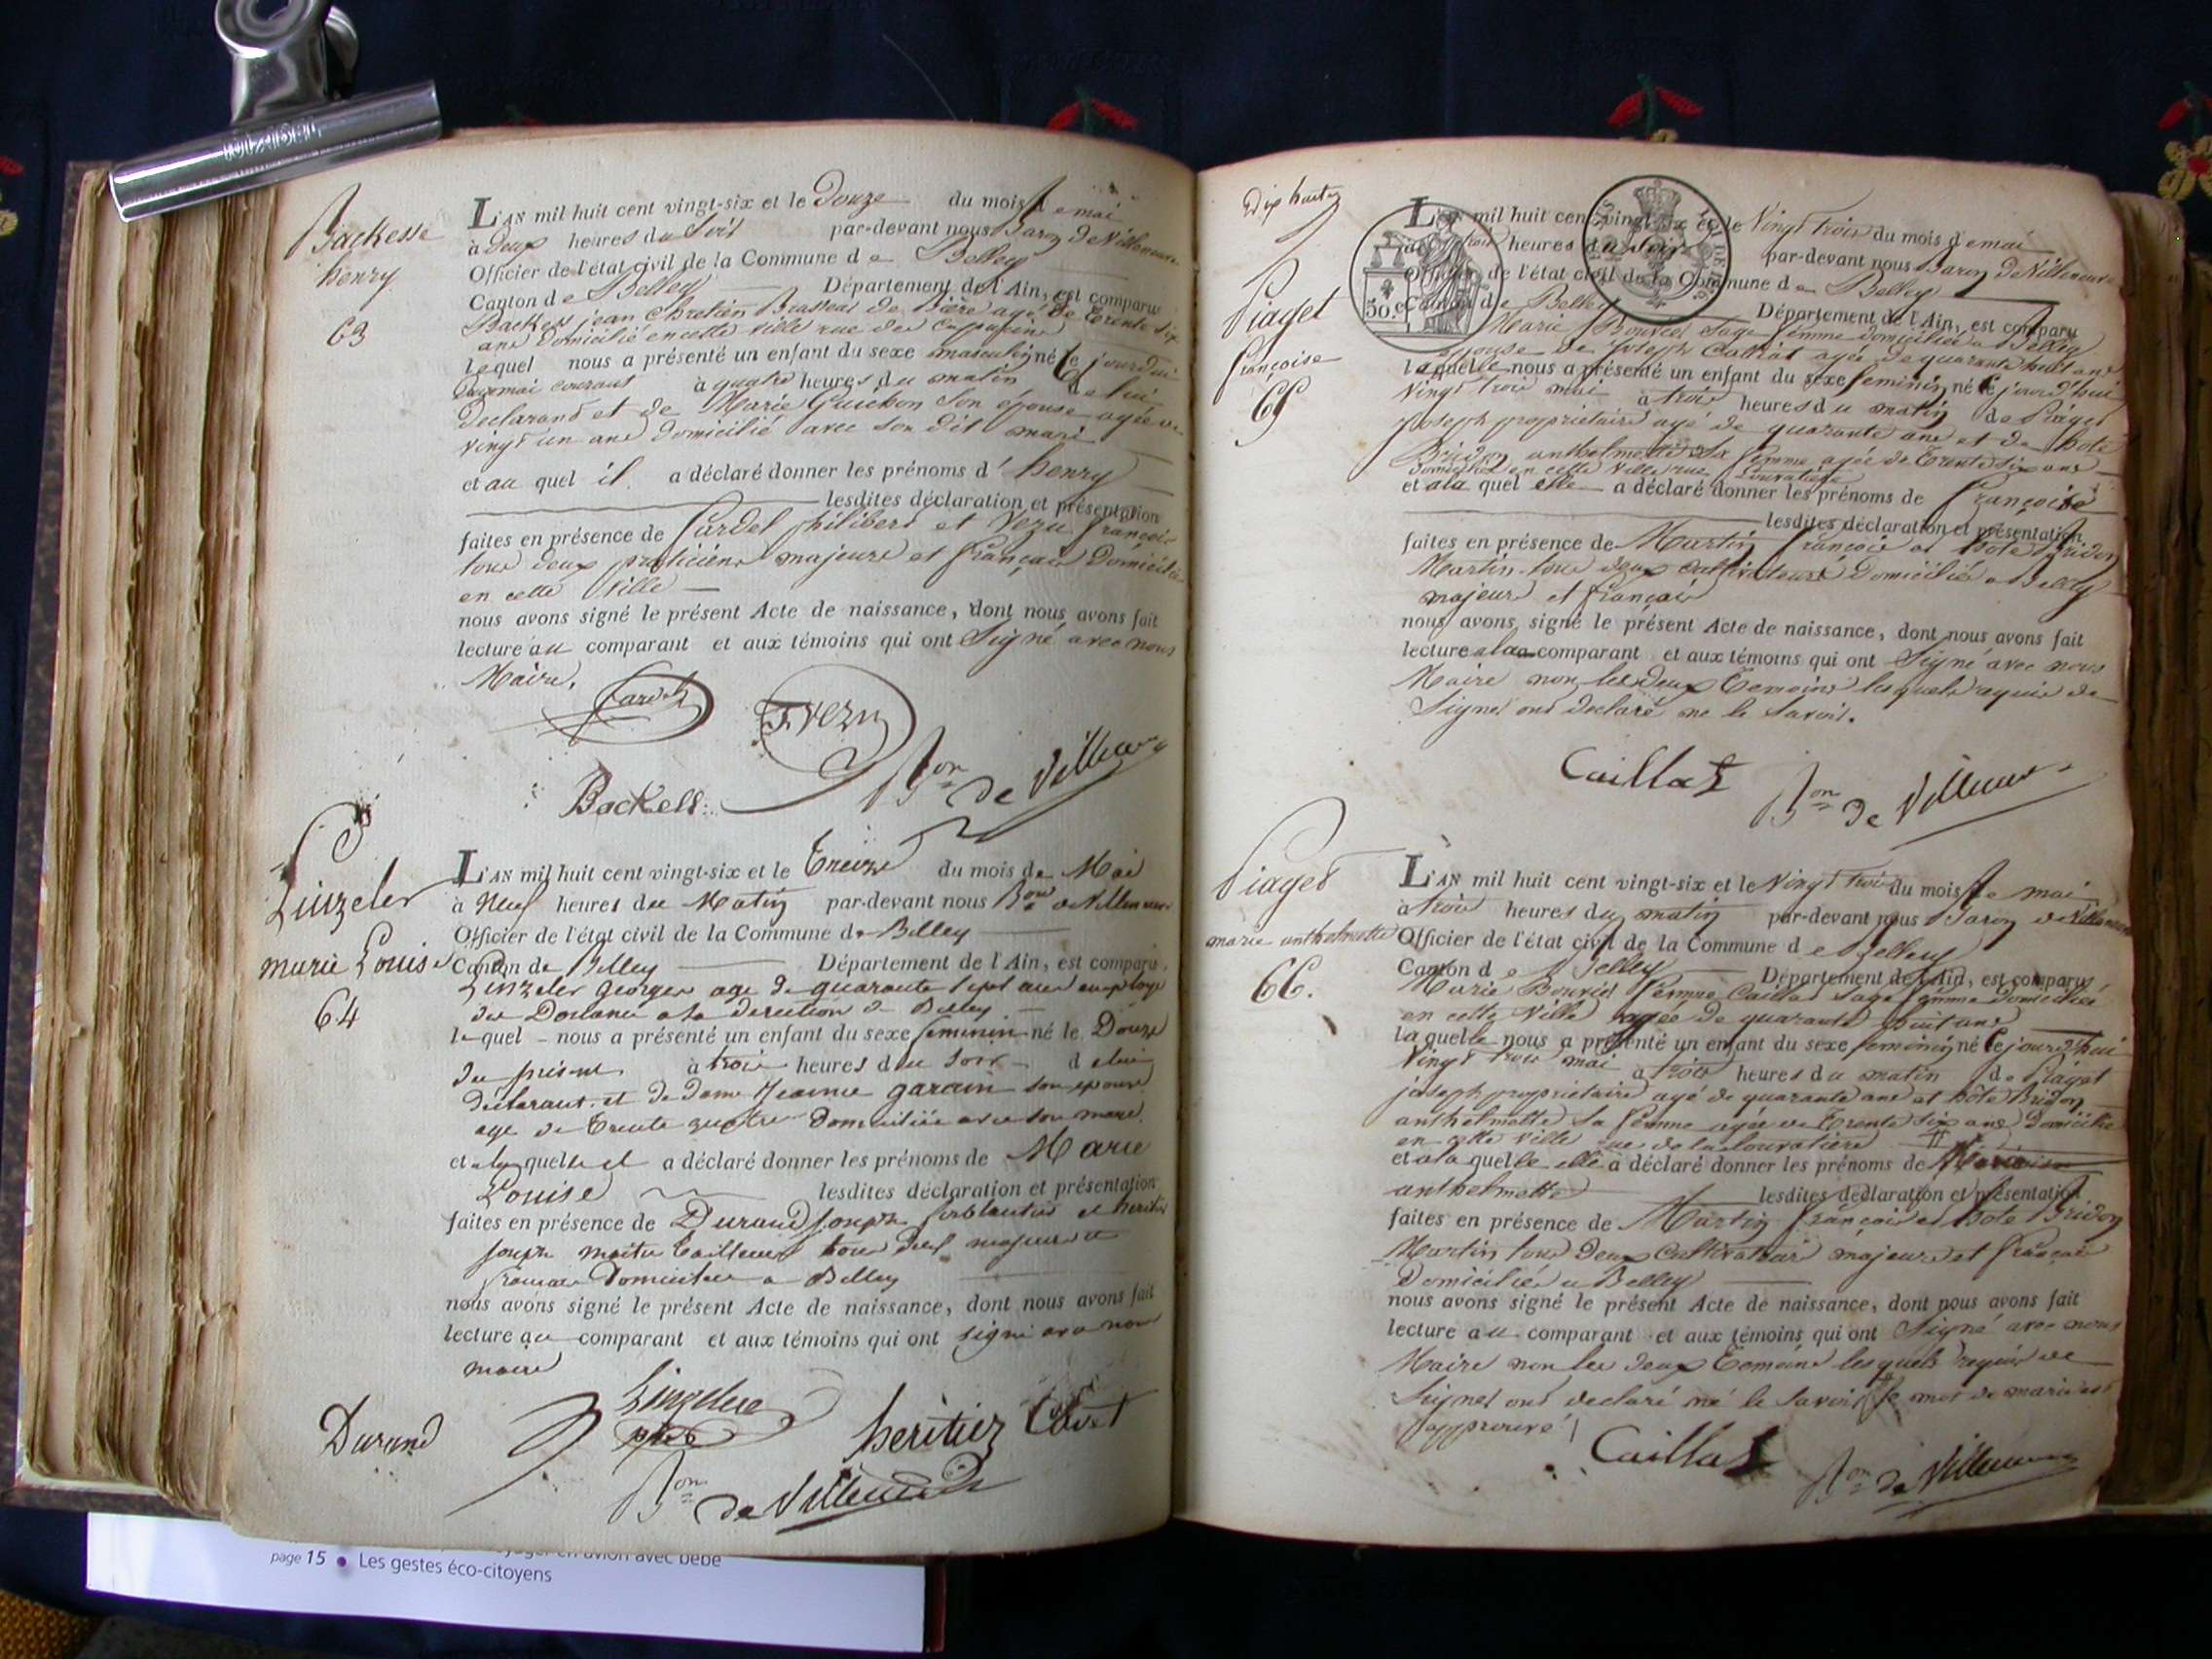 Backesse
henry
63
L'AN mil huit cent vingt-six et le Douze du mois de mai
à deux heures du Soir par-devant nous Baron de Villeneuve
Officier de l'état civil de la Commune de Belley
Canton de Belley Département de l'Ain, est comparu
Backess jean Chretien Brasseur de Bière agé de Trente six
ans Domicilié en cette ville rue des Capucins
lequel nous a présenté un enfant du sexe masculin né le jourd'hui
Douze mai courant à quatre heures du matin de lui
Declarant et de Marie Guichon Son épouse agée de
vingt un ans Domicilié avec son dit mari
et au quel il a déclaré donner les prénoms d'henry
lesdites déclaration et présentation
faites en présence de Cardel philibert et Vezu françois
tous deux praticiens majeurs et français Domiciliés
en cette Ville
nous avons signé le présent Acte de naissance, dont nous avons fait
lecture au comparant et aux témoins qui ont Signé avec nous
Maire.
Cardel
F. Vezu
Backess
Bon de Villeneuve
Linzeler
marie Louise
64
L'AN mil huit cent vingt-six et le Treize du mois de Mai
à Neuf heures du Matin par-devant nous Bon de Villeneuve
Officier de l'état civil de la Commune de Belley
Canton de Belley Département de l'Ain, est comparu
Linzeler Georges age de quarante Sept ans employé
des Douanes a la direction de Belley
lequel nous a présenté un enfant du sexe feminin né le Douze
du présent à trois heures du soir de lui
déclarant et de dame Jeanne garain son epouse
age de Trente quatre Domiciliée avec son mari
et a la quelle il a déclaré donner les prénoms de Marie
Louise lesdites déclaration et présentation
faites en présence de Durand Joseph ferblantier et heritier
Joseph maitre tailleur tous deux majeurs et
francais Domicilies a Belley
nous avons signé le présent Acte de naissance, dont nous avons fait
lecture au comparant et aux témoins qui ont signé avec nous
maire
Durand
Linzeler
heritier
Bon de Villeneuve
Dix huit
Piaget
françoise
65
30. c
L'AN mil huit cent vingt-six et le Vingt trois du mois de mai
à trois heures du Soir par-devant nous Baron de Villeneuve
Officier de l'état civil de la Commune de Belley
Canton de Belley Département de l'Ain, est comparu
Marie Bouvier Sage femme domiciliée a Belley
epouse de joseph Caillat agée de quarante huit ans
laquelle nous a présenté un enfant du sexe feminin né le jourd'hui
Vingt trois mai à trois heures du matin de Piaget
joseph proprietaire agé de quarante ans et de hote
Bridon anthelmette Sa femme agée de Trente six ans
domiciliés en cette ville rue Louvatière
et a la quel elle a déclaré donner les prénoms de françoise
lesdites déclaration et présentation
faites en présence de Martin françois et hote Bridon
Martin tous deux Cultivateurs Domiciliés a Belley
majeurs et français
nous avons signé le présent Acte de naissance, dont nous avons fait
lecture a la comparant et aux témoins qui ont Signé avec nous
Maire non les deux Temoins lesquels requis de
Signer ont declaré ne le Savoir.
Caillat
Bon de Villeneuve
Piaget
marie anthelmette
66.
L'AN mil huit cent vingt-six et le Vingt trois du mois de mai
à trois heures du matin par-devant nous Baron de Villeneuve
Officier de l'état civil de la Commune de Belley
Canton de Belley Département de l'Ain, est comparu
Marie Bouvier femme Caillat Sage femme domiciliée
en cette Ville agée de quarante huit ans
laquelle nous a présenté un enfant du sexe feminin né le jourd'hui
Vingt trois mai à trois heures du matin de Piaget
joseph proprietaire agé de quarante ans et hote Bridon
anthelmette Sa femme agée de Trente six ans Domicilié
en cette ville rue de la Louvatière
et a la quelle elle a déclaré donner les prénoms de Marie
anthelmette lesdites déclaration et présentation
faites en présence de Martin françois et hote Bridon
Martin tous deux Cultivateurs majeurs et français
Domiciliés a Belley
nous avons signé le présent Acte de naissance, dont nous avons fait
lecture au comparant et aux témoins qui ont Signé avec nous
Maire non les deux Temoins lesquels requis de
Signer ont declaré ne le Savoir le mot de marie est
approuvé
Caillat
Bon de Villeneuve
en avion avec bébé
page 15 • Les gestes éco-citoyens